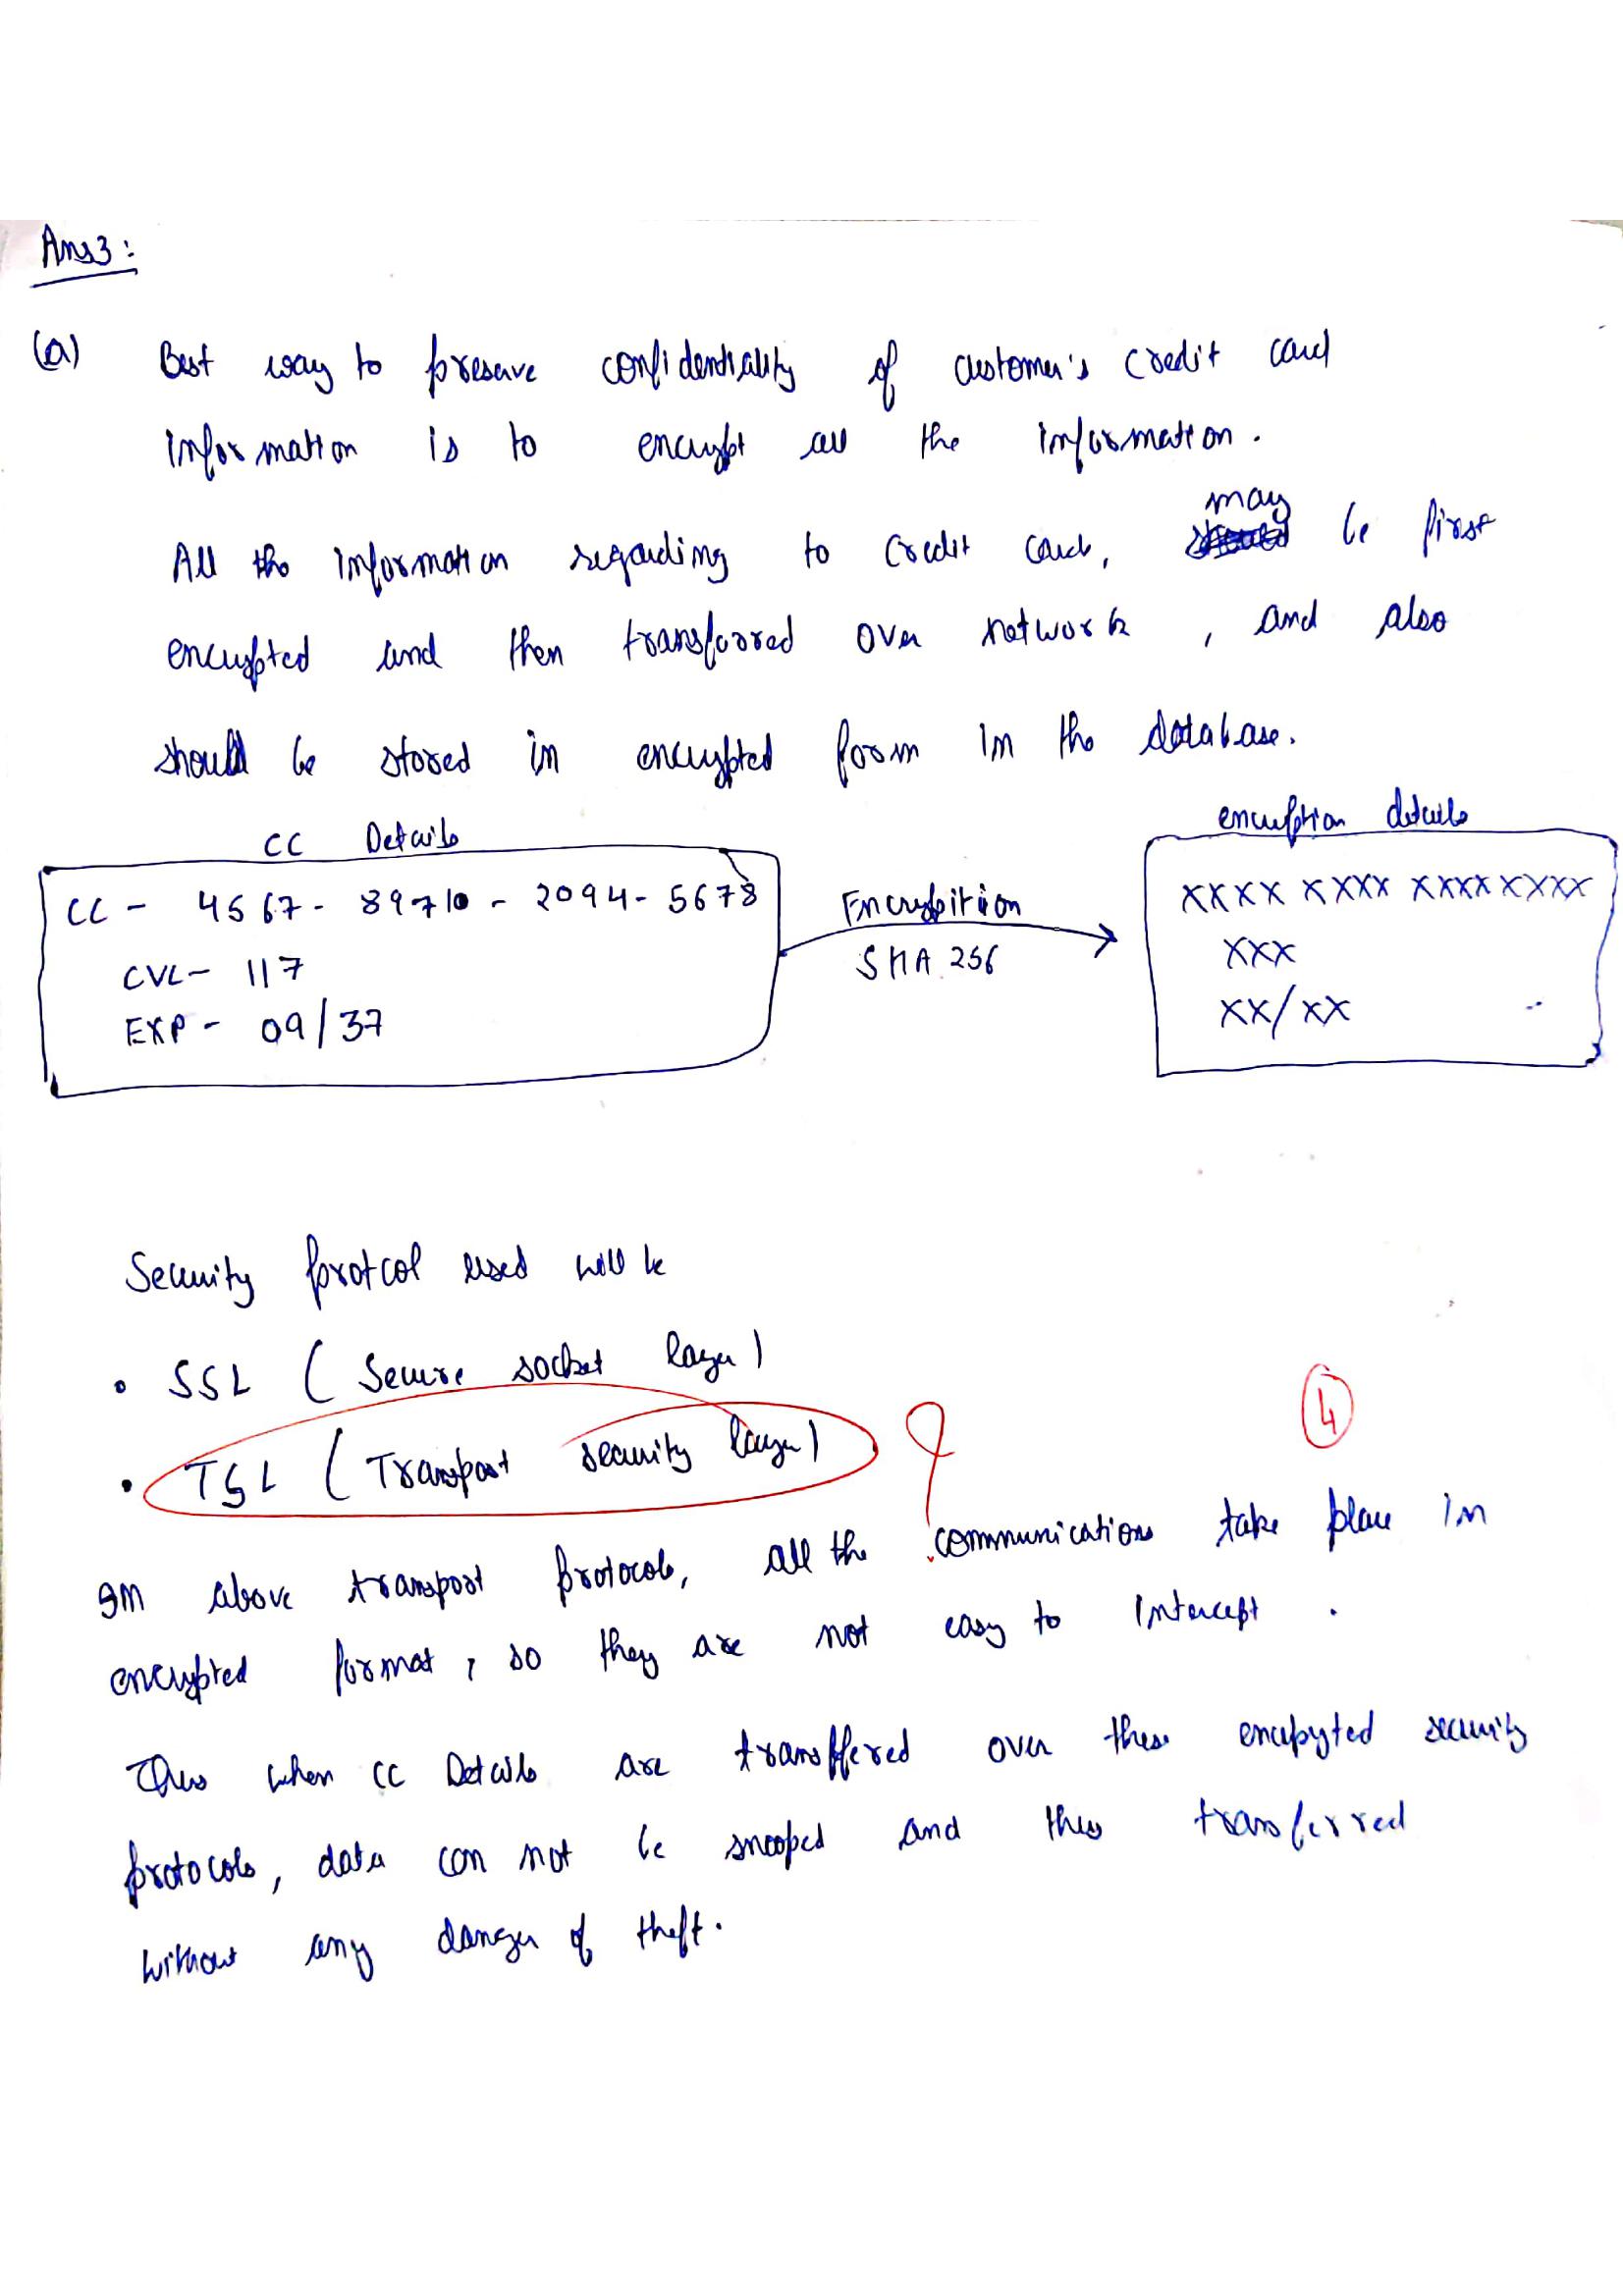 Ans3:
(a) Best way to preserve confidentiality of customer's credit card
information is to encrypt all the information.
may
All the information regarding to credit card, be first
encrypted and then transferred over network, and also
should be stored in encrypted form in the database.
CC Details
encryption details
CC - 4567 - 89710 - 2094 - 5678
CVL - 117
EXP - 09/37
Encrypition
SHA 256
XXXX XXXX XXXX XXXX
XXX
XX/XX
Security protcol used will be
• SSL (Secure socket layer)
• TSL (Transport security layer)
4
In above transport protocols, all the communications take place in
encrypted format, so they are not easy to intercept.
Thus when CC Details are transffered over these encrpyted security
protocols, data can not be snooped and thus transferred
without any danger of theft.